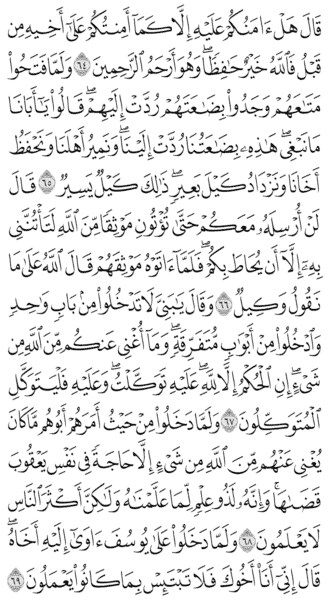 قَالَ هَلْ ءَامَنُكُمْ عَلَيْهِ إِلَّا كَمَآ أَمِنتُكُمْ عَلَىٰٓ أَخِيهِ مِن
قَبْلُ فَٱللَّهُ خَيْرٌ حَٰفِظًا ۖ وَهُوَ أَرْحَمُ ٱلرَّٰحِمِينَ ٦٤ وَلَمَّا فَتَحُوا۟
مَتَٰعَهُمْ وَجَدُوا۟ بِضَٰعَتَهُمْ رُدَّتْ إِلَيْهِمْ ۖ قَالُوا۟ يَٰٓأَبَانَا
مَا نَبْغِى ۖ هَٰذِهِۦ بِضَٰعَتُنَا رُدَّتْ إِلَيْنَا ۖ وَنَمِيرُ أَهْلَنَا وَنَحْفَظُ
أَخَانَا وَنَزْدَادُ كَيْلَ بَعِيرٍ ۖ ذَٰلِكَ كَيْلٌ يَسِيرٌ ٦٥ قَالَ
لَنْ أُرْسِلَهُۥ مَعَكُمْ حَتَّىٰ تُؤْتُونِ مَوْثِقًا مِّنَ ٱللَّهِ لَتَأْتُنَّنِى
بِهِۦٓ إِلَّآ أَن يُحَاطَ بِكُمْ ۖ فَلَمَّآ ءَاتَوْهُ مَوْثِقَهُمْ قَالَ ٱللَّهُ عَلَىٰ مَا
نَقُولُ وَكِيلٌ ٦٦ وَقَالَ يَٰبَنِىَّ لَا تَدْخُلُوا۟ مِنۢ بَابٍ وَٰحِدٍ
وَٱدْخُلُوا۟ مِنْ أَبْوَٰبٍ مُّتَفَرِّقَةٍ ۖ وَمَآ أُغْنِى عَنكُم مِّنَ ٱللَّهِ مِن
شَىْءٍ ۖ إِنِ ٱلْحُكْمُ إِلَّا لِلَّهِ ۖ عَلَيْهِ تَوَكَّلْتُ ۖ وَعَلَيْهِ فَلْيَتَوَكَّلِ
ٱلْمُتَوَكِّلُونَ ٦٧ وَلَمَّا دَخَلُوا۟ مِنْ حَيْثُ أَمَرَهُمْ أَبُوهُم مَّا كَانَ
يُغْنِى عَنْهُم مِّنَ ٱللَّهِ مِن شَىْءٍ إِلَّا حَاجَةً فِى نَفْسِ يَعْقُوبَ
قَضَىٰهَا ۚ وَإِنَّهُۥ لَذُو عِلْمٍ لِّمَا عَلَّمْنَٰهُ وَلَٰكِنَّ أَكْثَرَ ٱلنَّاسِ
لَا يَعْلَمُونَ ٦٨ وَلَمَّا دَخَلُوا۟ عَلَىٰ يُوسُفَ ءَاوَىٰٓ إِلَيْهِ أَخَاهُ ۖ
قَالَ إِنِّىٓ أَنَا۠ أَخُوكَ فَلَا تَبْتَئِسْ بِمَا كَانُوا۟ يَعْمَلُونَ ٦٩